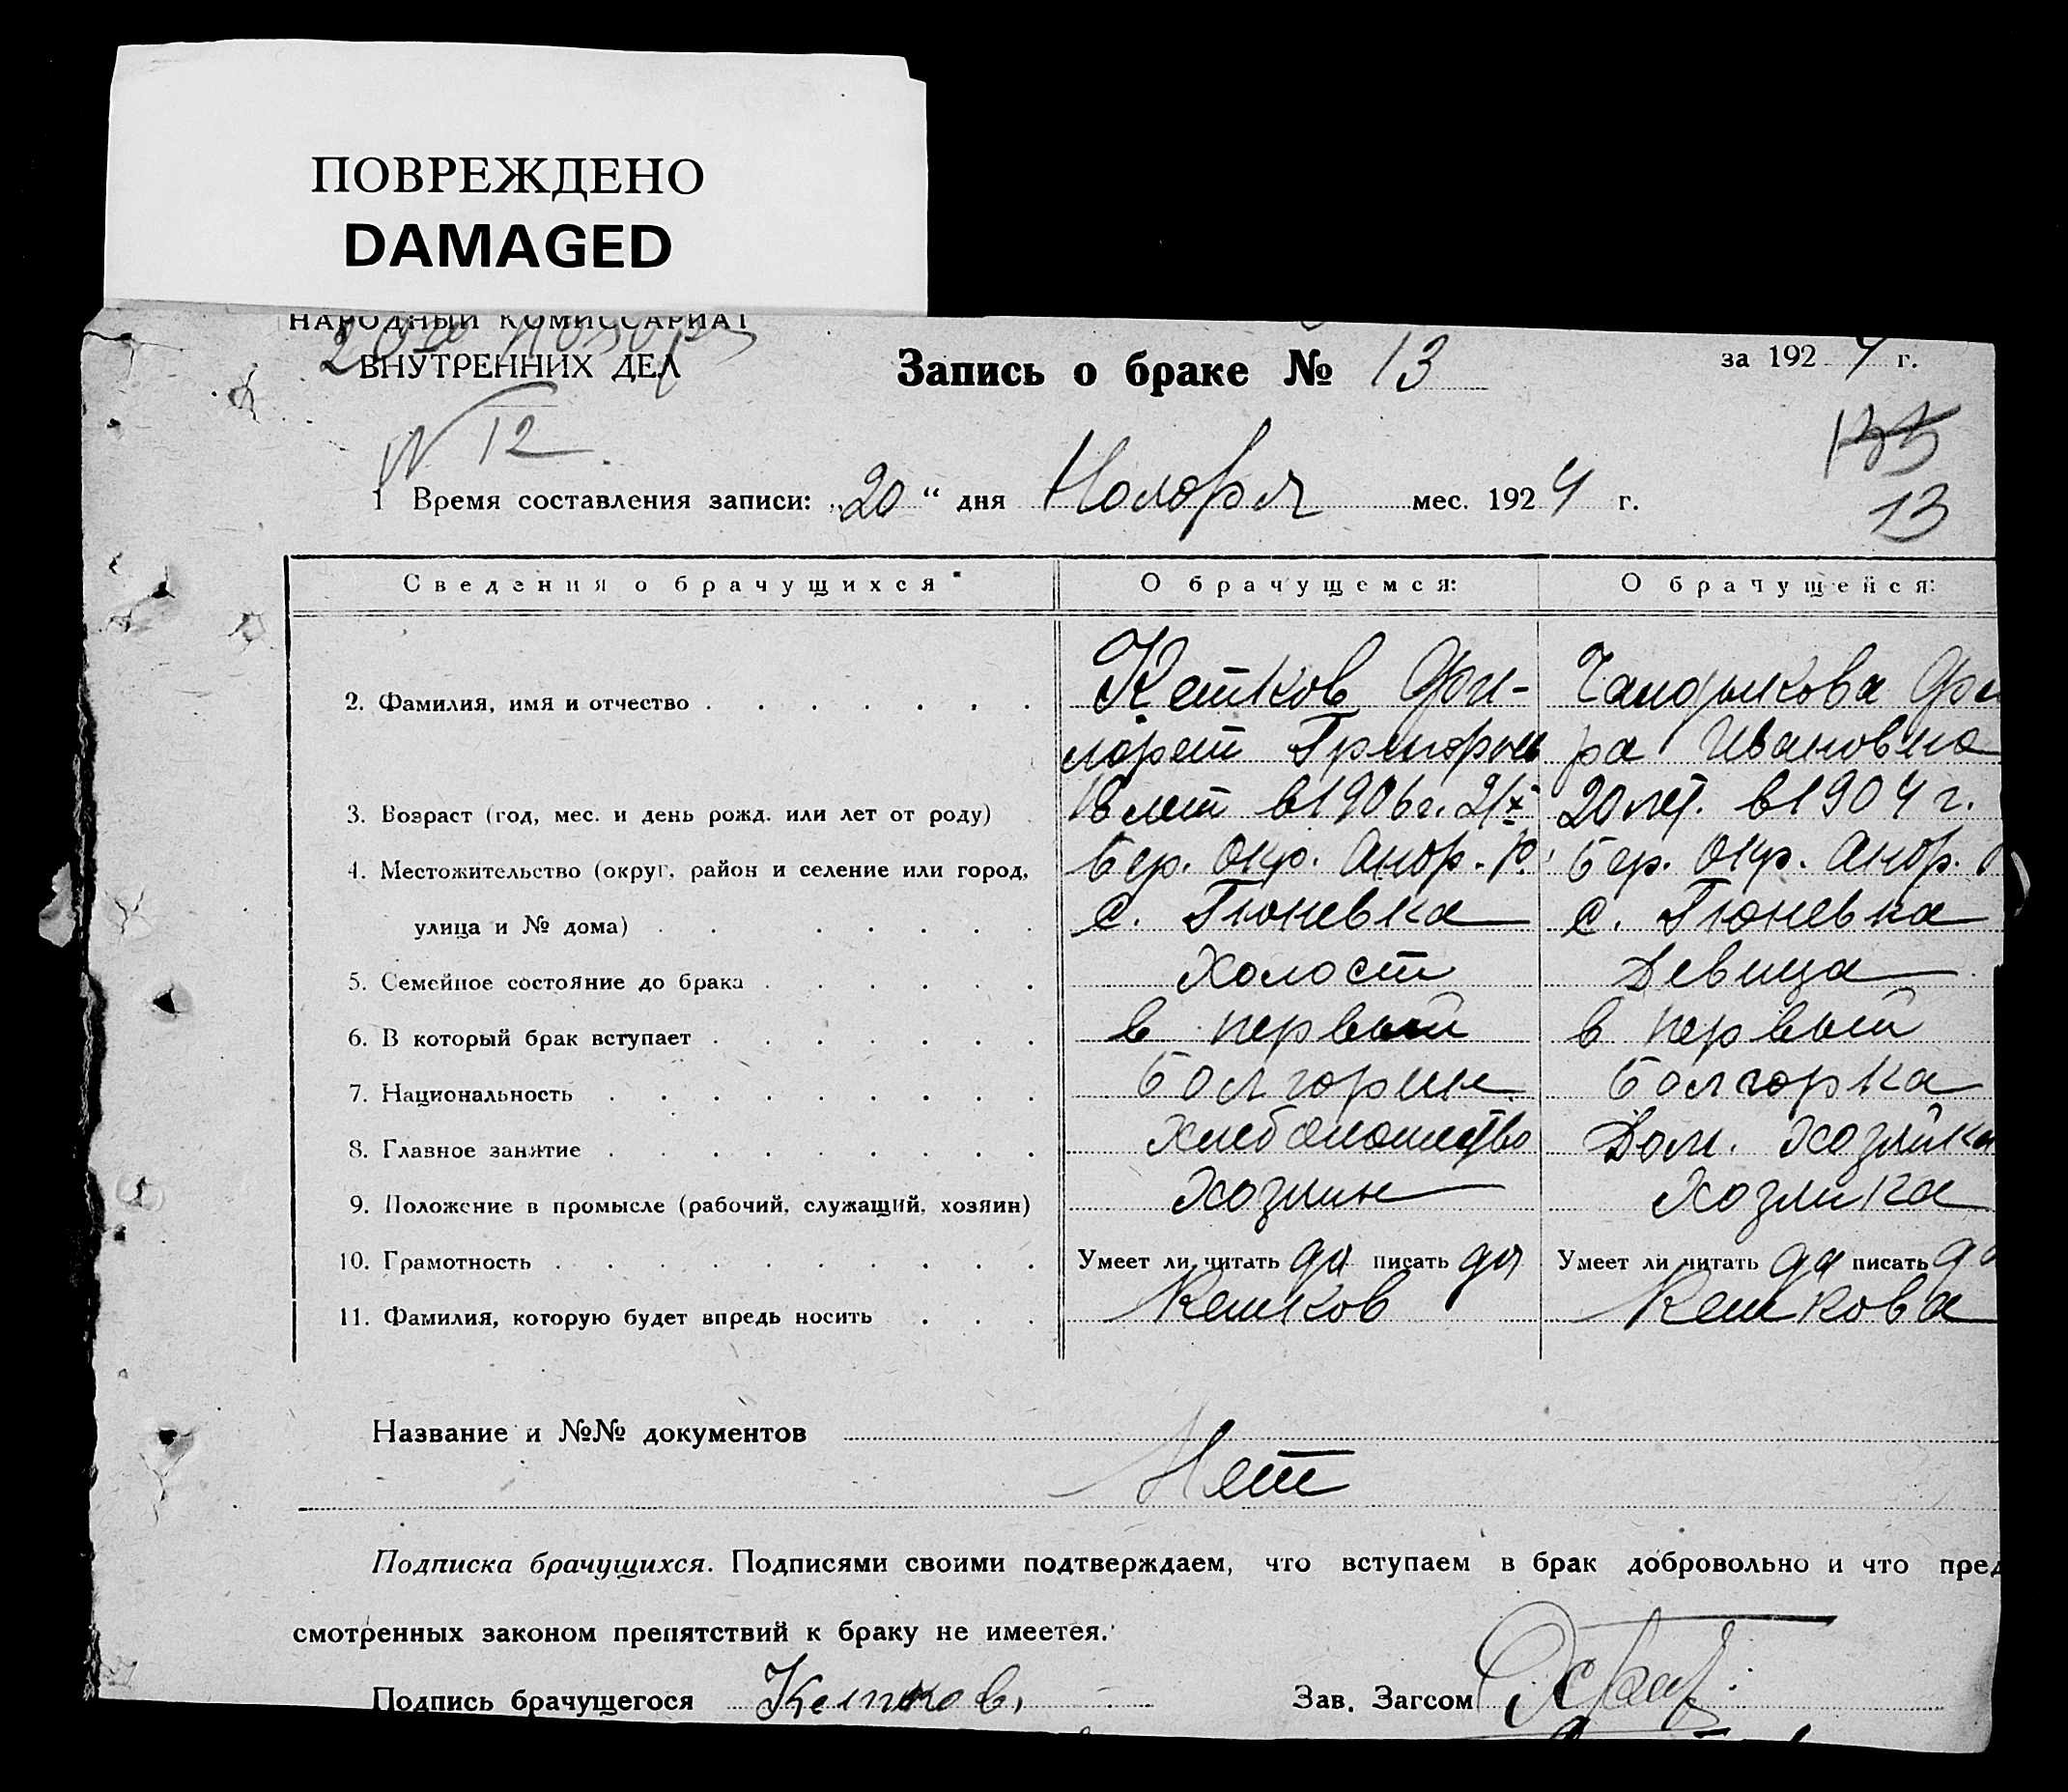 ПОВРЕЖДЕНО
DAMAGED
НАРОДНЫЙ КОМИССАРИАТ
ВНУТРЕННИХ ДЕЛ
20го
Запись о браке № 13
за 1924 г.
N 12
133
13
1 Время составления записи: „20“ дня Ноября мес. 1924 г.
Сведения о брачущихся
О брачущемся:
О брачущейся:
2. Фамилия, имя и отчество
Кетков Фи-
ларет Григорьев
Чандыкова
ра Ивановна
3. Возраст (год, мес. и день рожд. или лет от роду)
18 лет в 1906 г. 21/X
20 лет. в 1904 г.
4. Местожительство (округ, район и селение или город,
улица и № дома)
Бер. Окр. Анор. р.
с. Гюневка
Бер. Окр. Анор.
с. Гюневка
5. Семейное состояние до брака
Холост
Девица
6. В который брак вступает
в первый
в первый
7. Национальность
Болгорин
Болгорка
8. Главное занятие
Хлебопашество
Дом. Хозяйка
9. Положение в промысле (рабочий, служащий, хозяин)
Хозяин
Хозяйка
10. Грамотность
Умеет ли читать да писать да
Умеет ли читать да писать да
11. Фамилия, которую будет впредь носить
Кетков
Кеткова
Название и №№ документов
Нет
Подписка брачущихся. Подписями своими подтверждаем, что вступаем в брак добровольно и что пред
смотренных законом препятствий к браку не имеется.
Подпись брачущегося Кетков.
Зав. Загсом